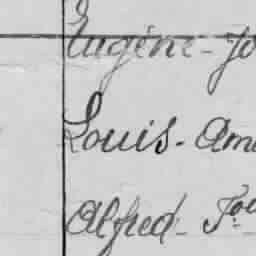 Eugène - Jo
Louis - Am
Alfred - Fou